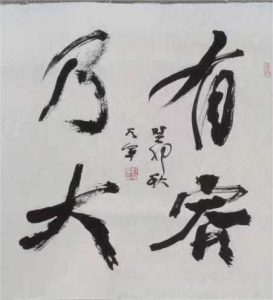 有容
乃大
癸卯秋
天军